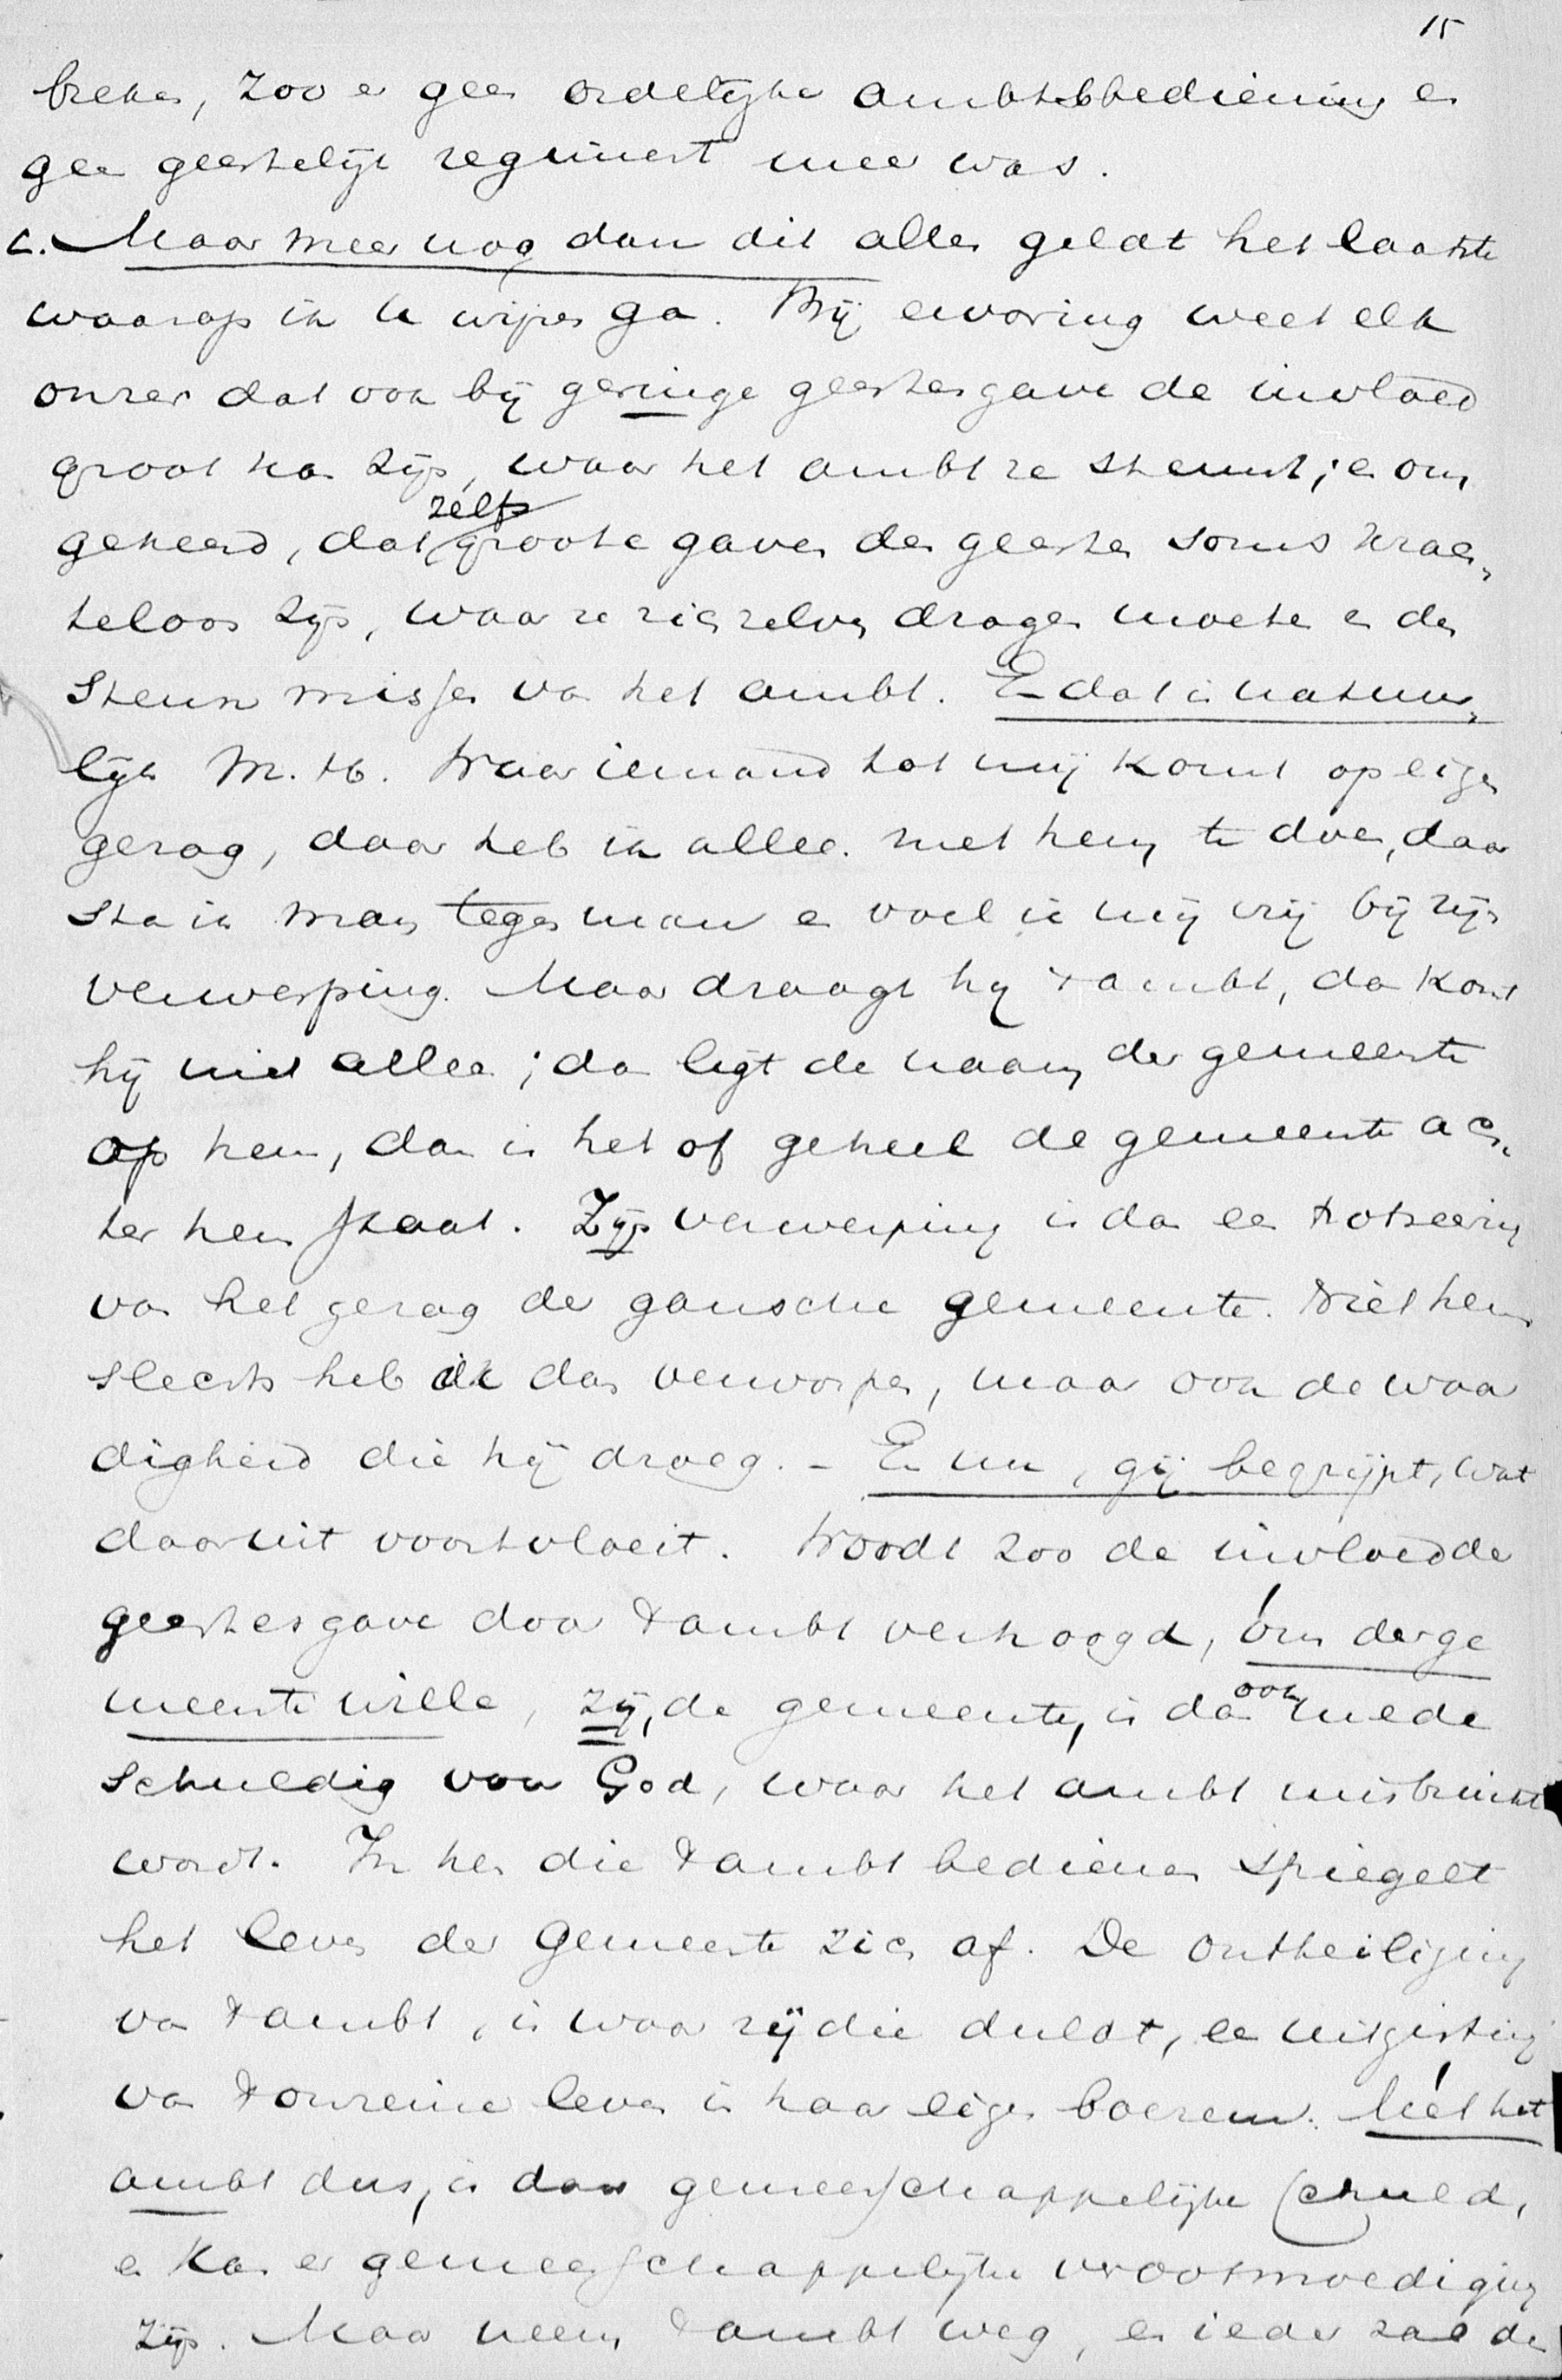 15
breken, zoo er geen ordelijke ambtsbediening en
geen geestelijk regiment meer was.
c. Maar meer nog dan dit alles geldt het laatste
waarop ik u wijzen ga. Bij ervaring weet elk
onzer dat ook bij geringe geestesgave de invloed
groot kan zijn, waar het ambt ze steunt; en om
gekeerd, dat zelfs groote gaven des geestes soms krach„
teloos zijn, waar ze zich zelven dragen moeten en den
steun missen van het ambt. En dat is natuur„
lijk M. H. Waar iemand tot mij komt op eigen
gezag, daar heb ik alleen met hem te doen, daar
sta ik man tegen man en voel ik mij vrij bij zijn
verwerping. Maar draagt hij 't ambt, dan komt
hij niet alleen; dan ligt de naam der gemeente
op hem, dan is het of geheel de gemeente ach„
ter hem staat. Zijn verwerping is dan een trotseering
van het gezag der gansche gemeente. Niet hem
slechts heb ik dan verworpen, maar ook de waar
digheid die hij droeg. – En nu, gij begrijpt, wat
daaruit voortvloeit. Wordt zoo de invloed de
geestesgave door 't ambt verhoogd, óm der ge
meente wille, zij, de gemeente, is dan ook mede
schuldig voor God, waar het ambt misbruikt
wordt. In hen die 't ambt bedienen spiegelt
het leven der Gemeente zich af. De ontheiliging
van 't ambt, is waar zij die duldt, een uitgisting
van 't onreine leven in haar eigen boezem. Mét het
ambt dus, is dan gemeenschappelijke schuld,
en kan er gemeenschappelijke verootmoediging
zijn. Maar neem 't ambt weg, en ieder zal de